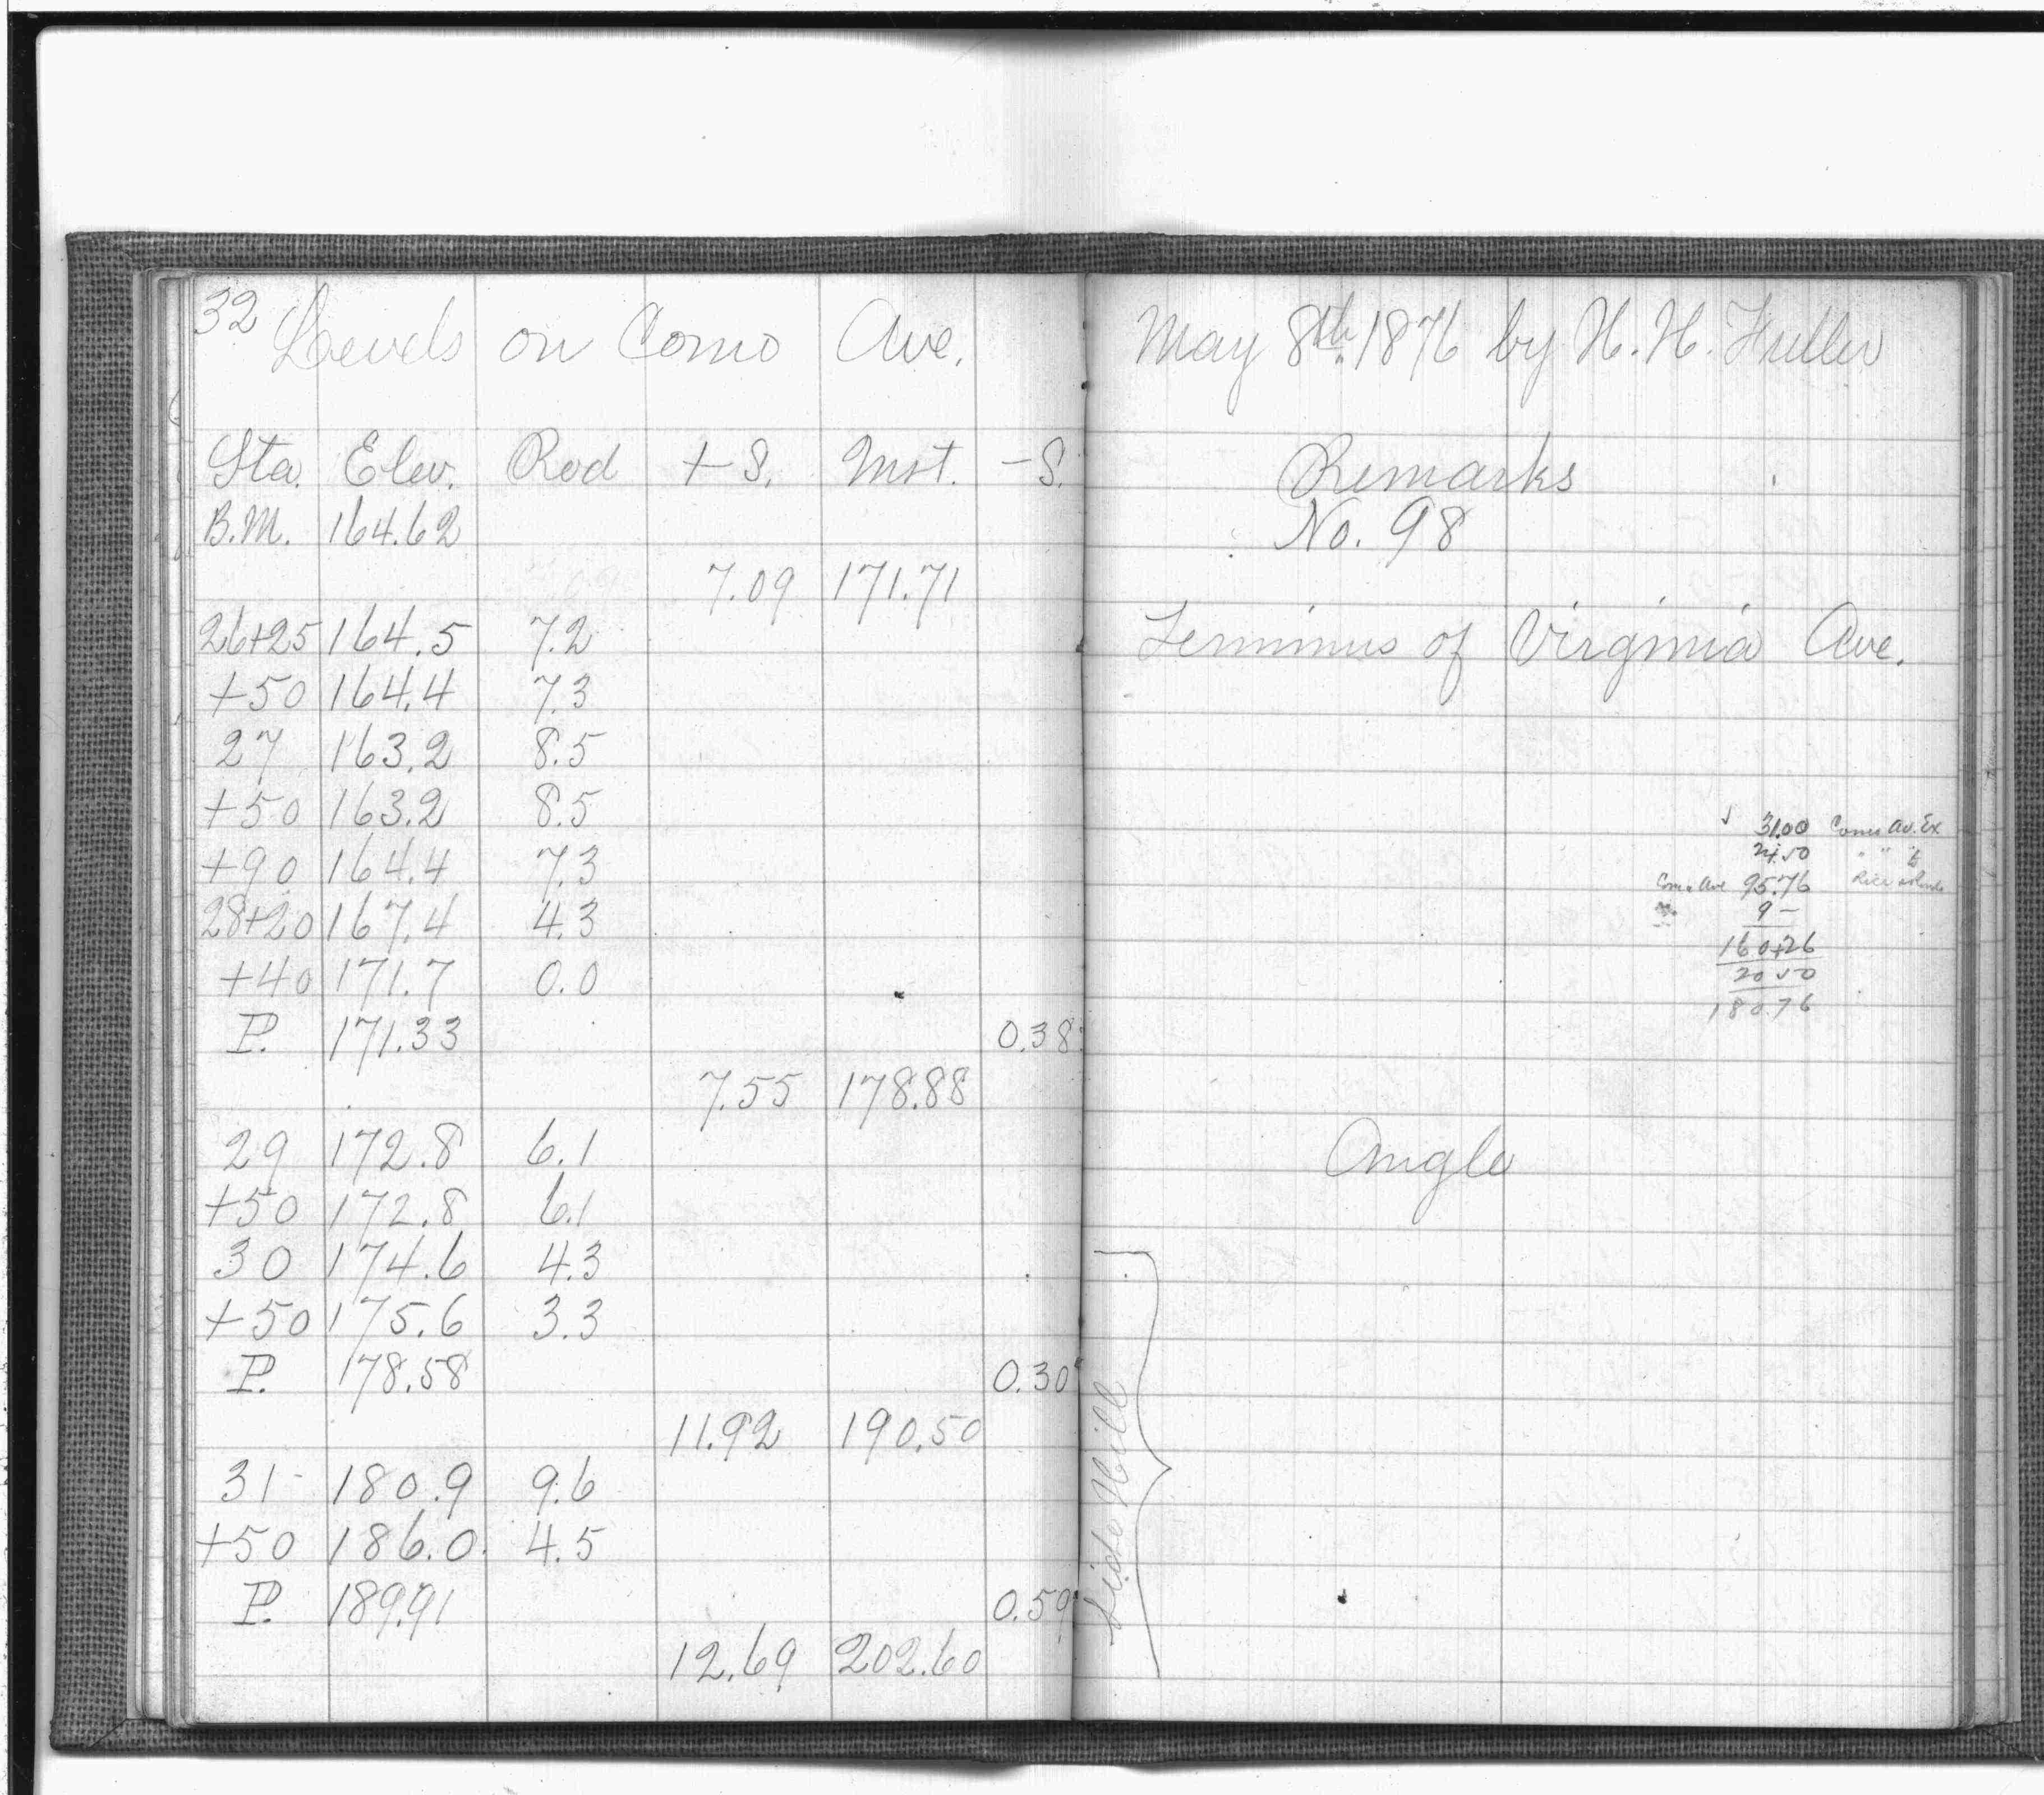 32
Levels on Como Ave.
Sta. Elev. Rod + S. Inst. - S.
B.M. 164.62
7.09 171.71
26+25 164.5 7.2
+50 164.4 7.3
27 163.2 8.5
+50 163.2 8.5
+90 164.4 7.3
28+20 167.4 4.3
+40 171.7 0.0
P. 171.33 0.38
7.55 178.88
29 172.8 6.1
+50 172.8 6.1
30 174.6 4.3
+50 175.6 3.3
P. 178.58 0.30
11.92 190.50
31 180.9 9.6
+50 186.0 4.5
P. 189.91 0.59
12.69 202.60
May 8th. 1876 by H. H. Fuller
Remarks
No. 98
Terminus of Virginia Ave.
31.00 Como Av. Ex
24.50 " "
Como Ave 95.76 Rice
9 -
160+26
20 50
180.76
Angle
Side Hill